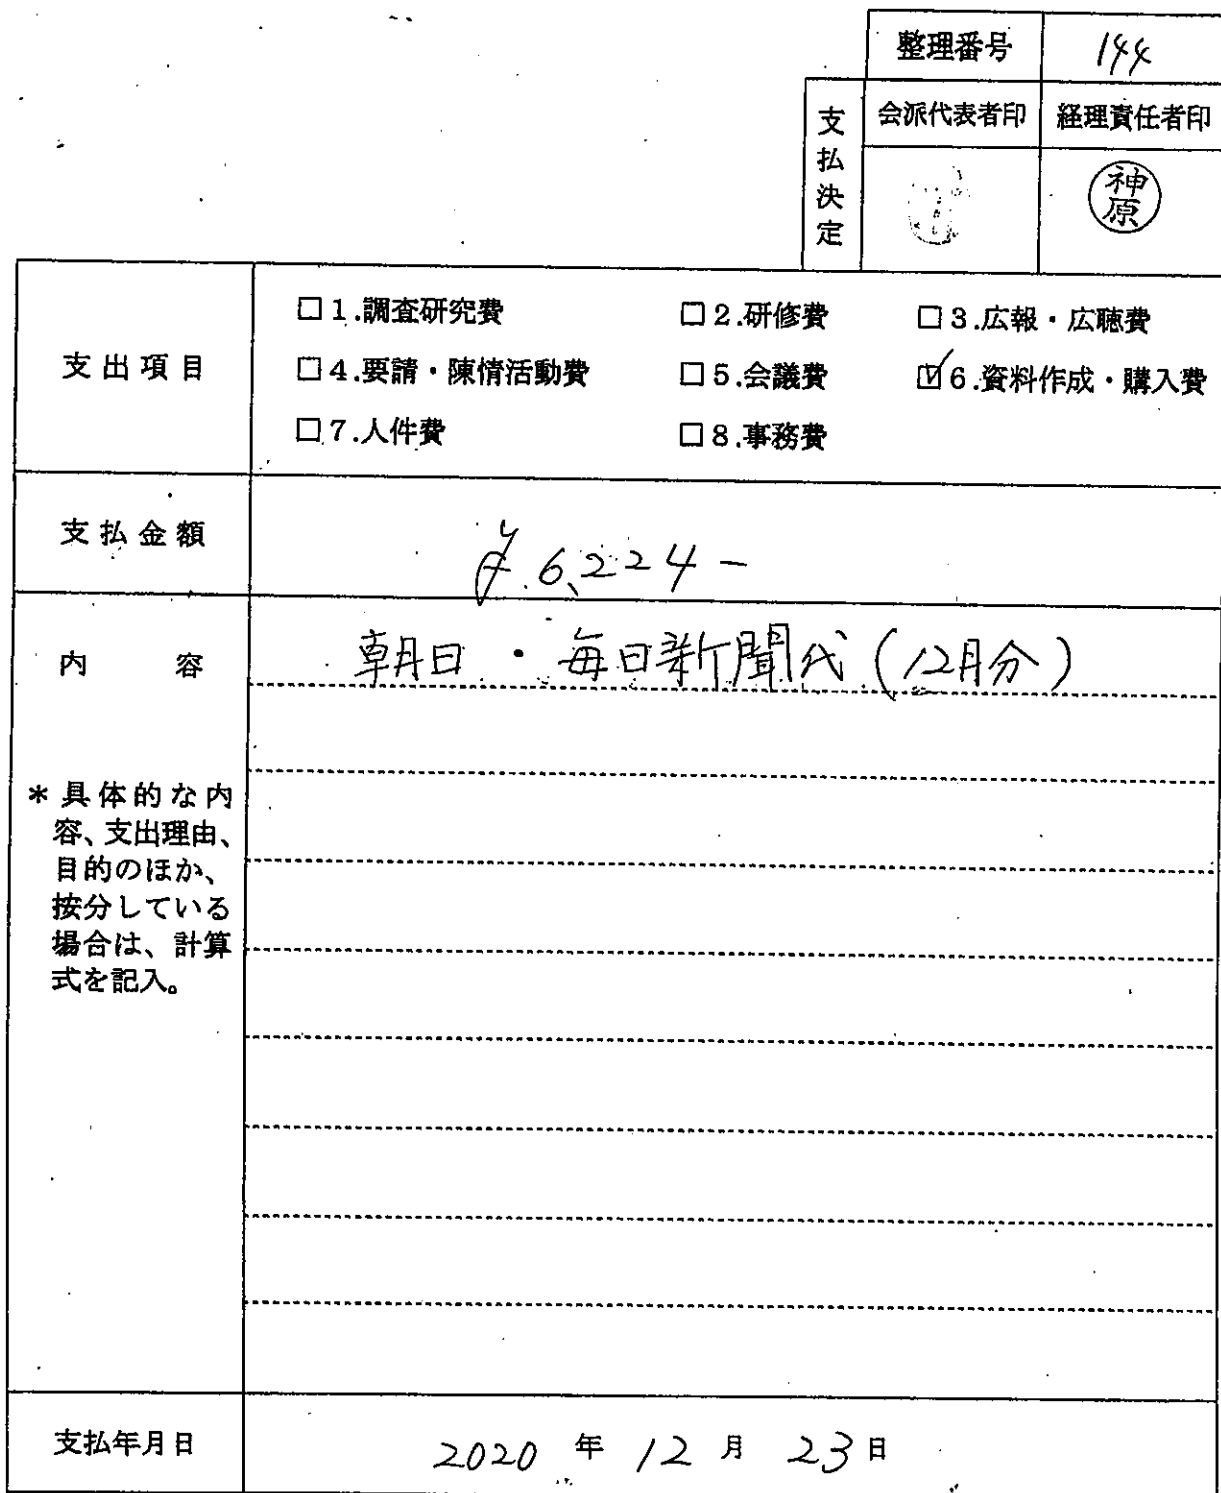 整理番号 144
支払決定 会派代表者印 経理責任者印
神原
支出項目
□1.調査研究費 □2.研修費 □3.広報・広聴費
□4.要請・陳情活動費 □5.会議費 ☑6.資料作成・購入費
□7.人件費 □8.事務費
支払金額 ¥6,224-
内容 朝日・毎日新聞代(12月分)
*具体的な内
容、支出理由、
目的のほか、
按分している
場合は、計算
式を記入。
支払年月日 2020年12月23日